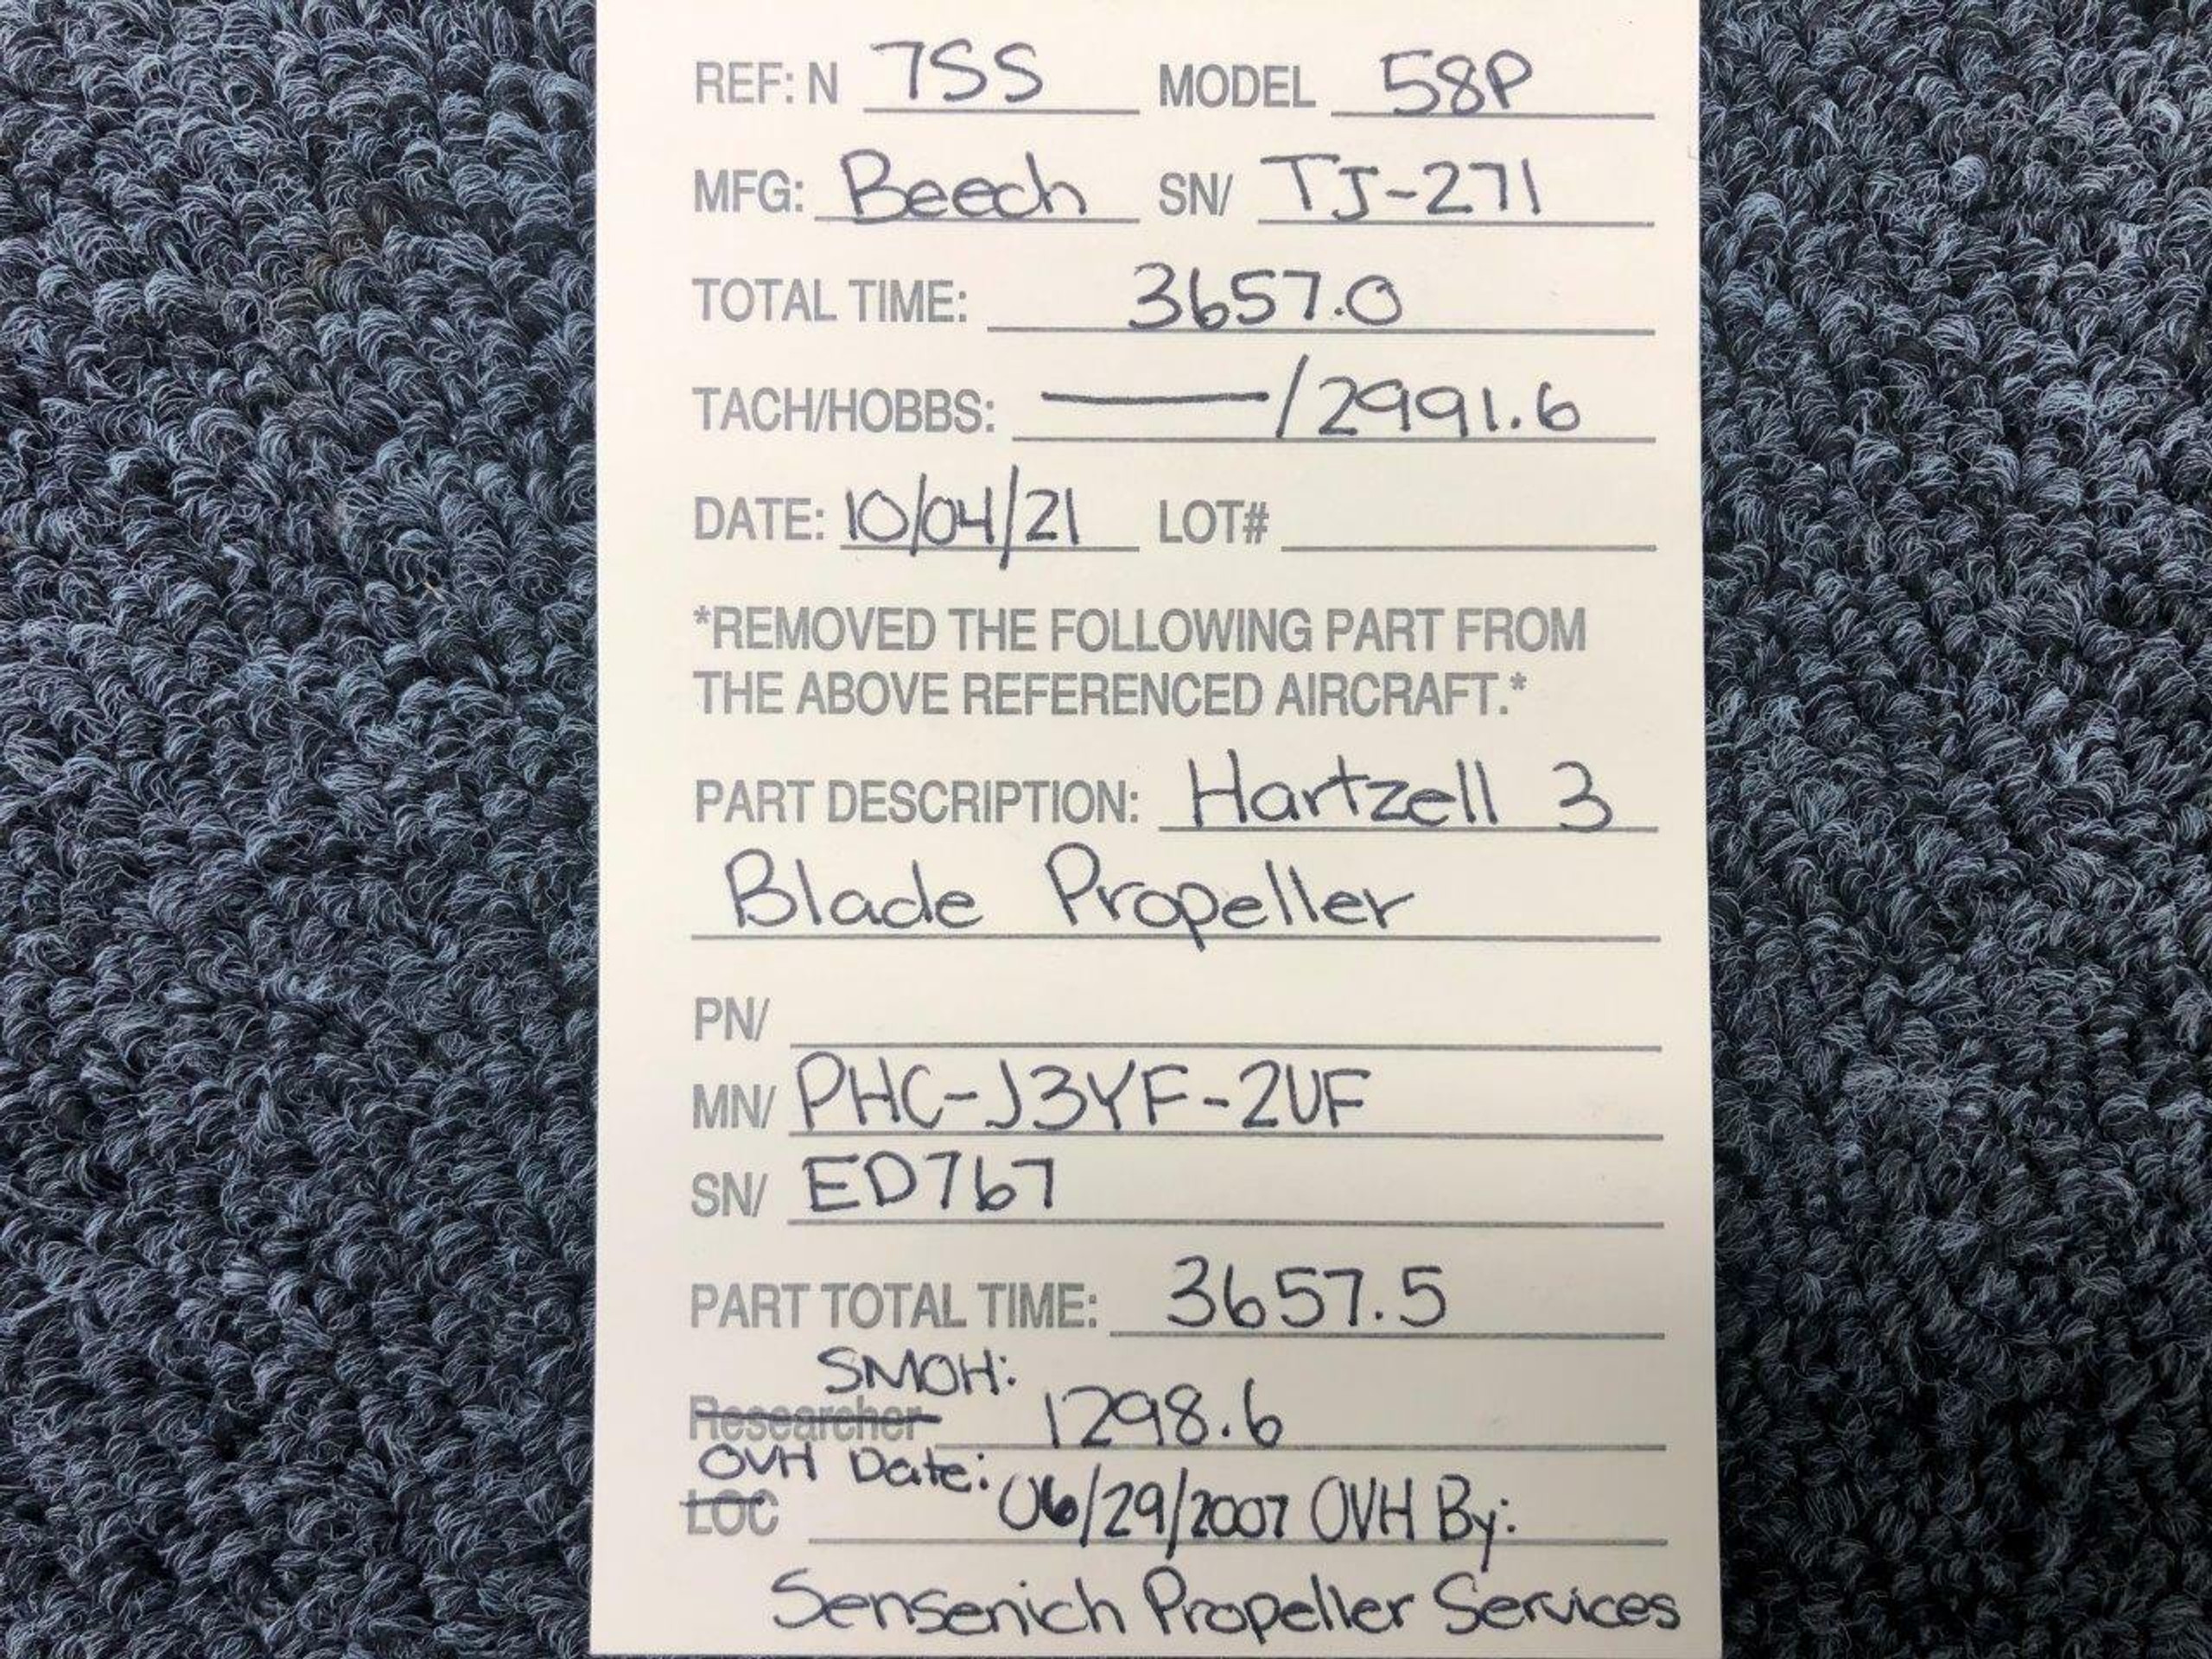 REF: N 7SS MODEL 58P
MFG: Beech SN/ TJ-271
TOTAL TIME: 3657.0
TACH/HOBBS: —/2991.6
DATE: 10/04/21 LOT#
*REMOVED THE FOLLOWING PART FROM
THE ABOVE REFERENCED AIRCRAFT.*
PART DESCRIPTION: Hartzell 3
Blade Propeller
PN/
MN/ PHC-J3YF-2UF
SN/ ED767
PART TOTAL TIME: 3657.5
SMOH:
Researcher 1298.6
OVH Date: 06/29/2007 OVH By:
LOC
Sensenich Propeller Services